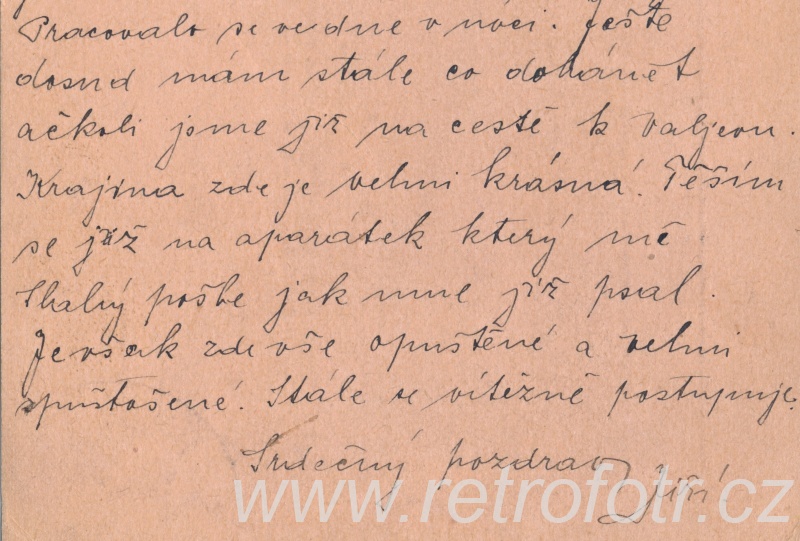 Pracovalo se ve dne v noci. Ještě
dosud mám stále co dohánět
ačkoli jsme již na cestě k Valjevu.
Krajina zde je velmi krásná. Těším
se již na aparátek který mě
Skalný pošle jak mne již psal.
Je však zde vše opuštěné a velmi
spustošené. Stále se vítězně postupuje.
Srdečný pozdrav Jiří
www.retrofotr.cz